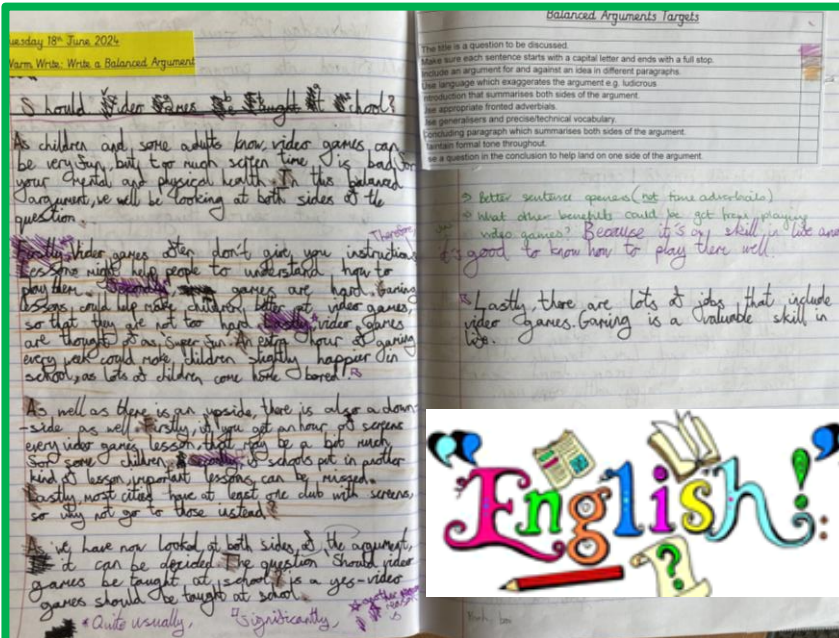 Tuesday 18th June 2024
Warm Write: Write a Balanced Argument
Should Video Games Be Taught At School?
As children and some adults know, video games, can
be very fun, but too much screen time, is bad for
your mental and physical health. In this balanced
argument, we will be looking at both sides of the
question.
Therefore,
Firstly, Video games often don't give you instructions
Lessons might help people to understand how to
play them. Secondly, games are hard. Gaming
lessons, could help make children better at video games,
so that they are not too hard. Lastly, video games
are thought of as, Super fun. An extra hour of gaming
every week could make children slightly happier in
school, as lots of children come home bored.
As well as there is an upside, there is also a down-
-side as well. Firstly, if you get an hour of screens
every video games lesson, that may be a bit much
for some children. Secondly, if schools put in another
kind of lesson, important lessons can be missed.
Lastly, most cities have at least one club with screens,
so why not go to those instead?
As we have now looked at both sides of the argument,
it can be decided. The question Should video
games be taught at school? is a yes-video
games should be taught at school.
*Quite usually, Significantly,
Balanced Arguments Targets
The title is a question to be discussed.
Make sure each sentence starts with a capital letter and ends with a full stop.
Include an argument for and against an idea in different paragraphs.
Use language which exaggerates the argument e.g. ludicrous
Introduction that summarises both sides of the argument.
Use appropriate fronted adverbials.
Use generalisers and precise/technical vocabulary.
Concluding paragraph which summarises both sides of the argument.
Maintain formal tone throughout.
Use a question in the conclusion to help land on one side of the argument.
Better sentence openers (not time adverbials)
What other benefits could be got from playing
video games? Because it's a skill in life and
it's good to know how to play them well.
Lastly, there are lots of jobs that include
video games. Gaming is a valuable skill in
life.
"English!"
?